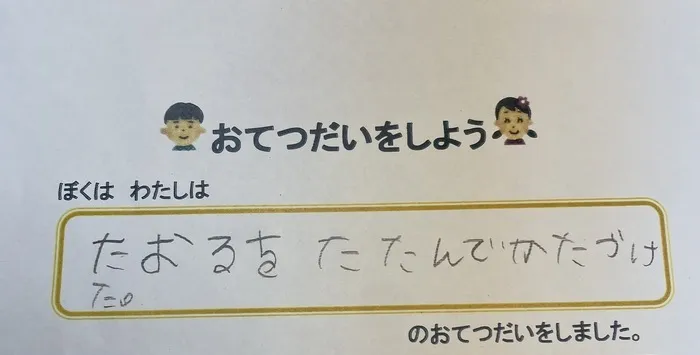 おてつだいをしよう
ぼくは わたしは
たおるを たたんでかたづけ
た。
のおてつだいをしました。